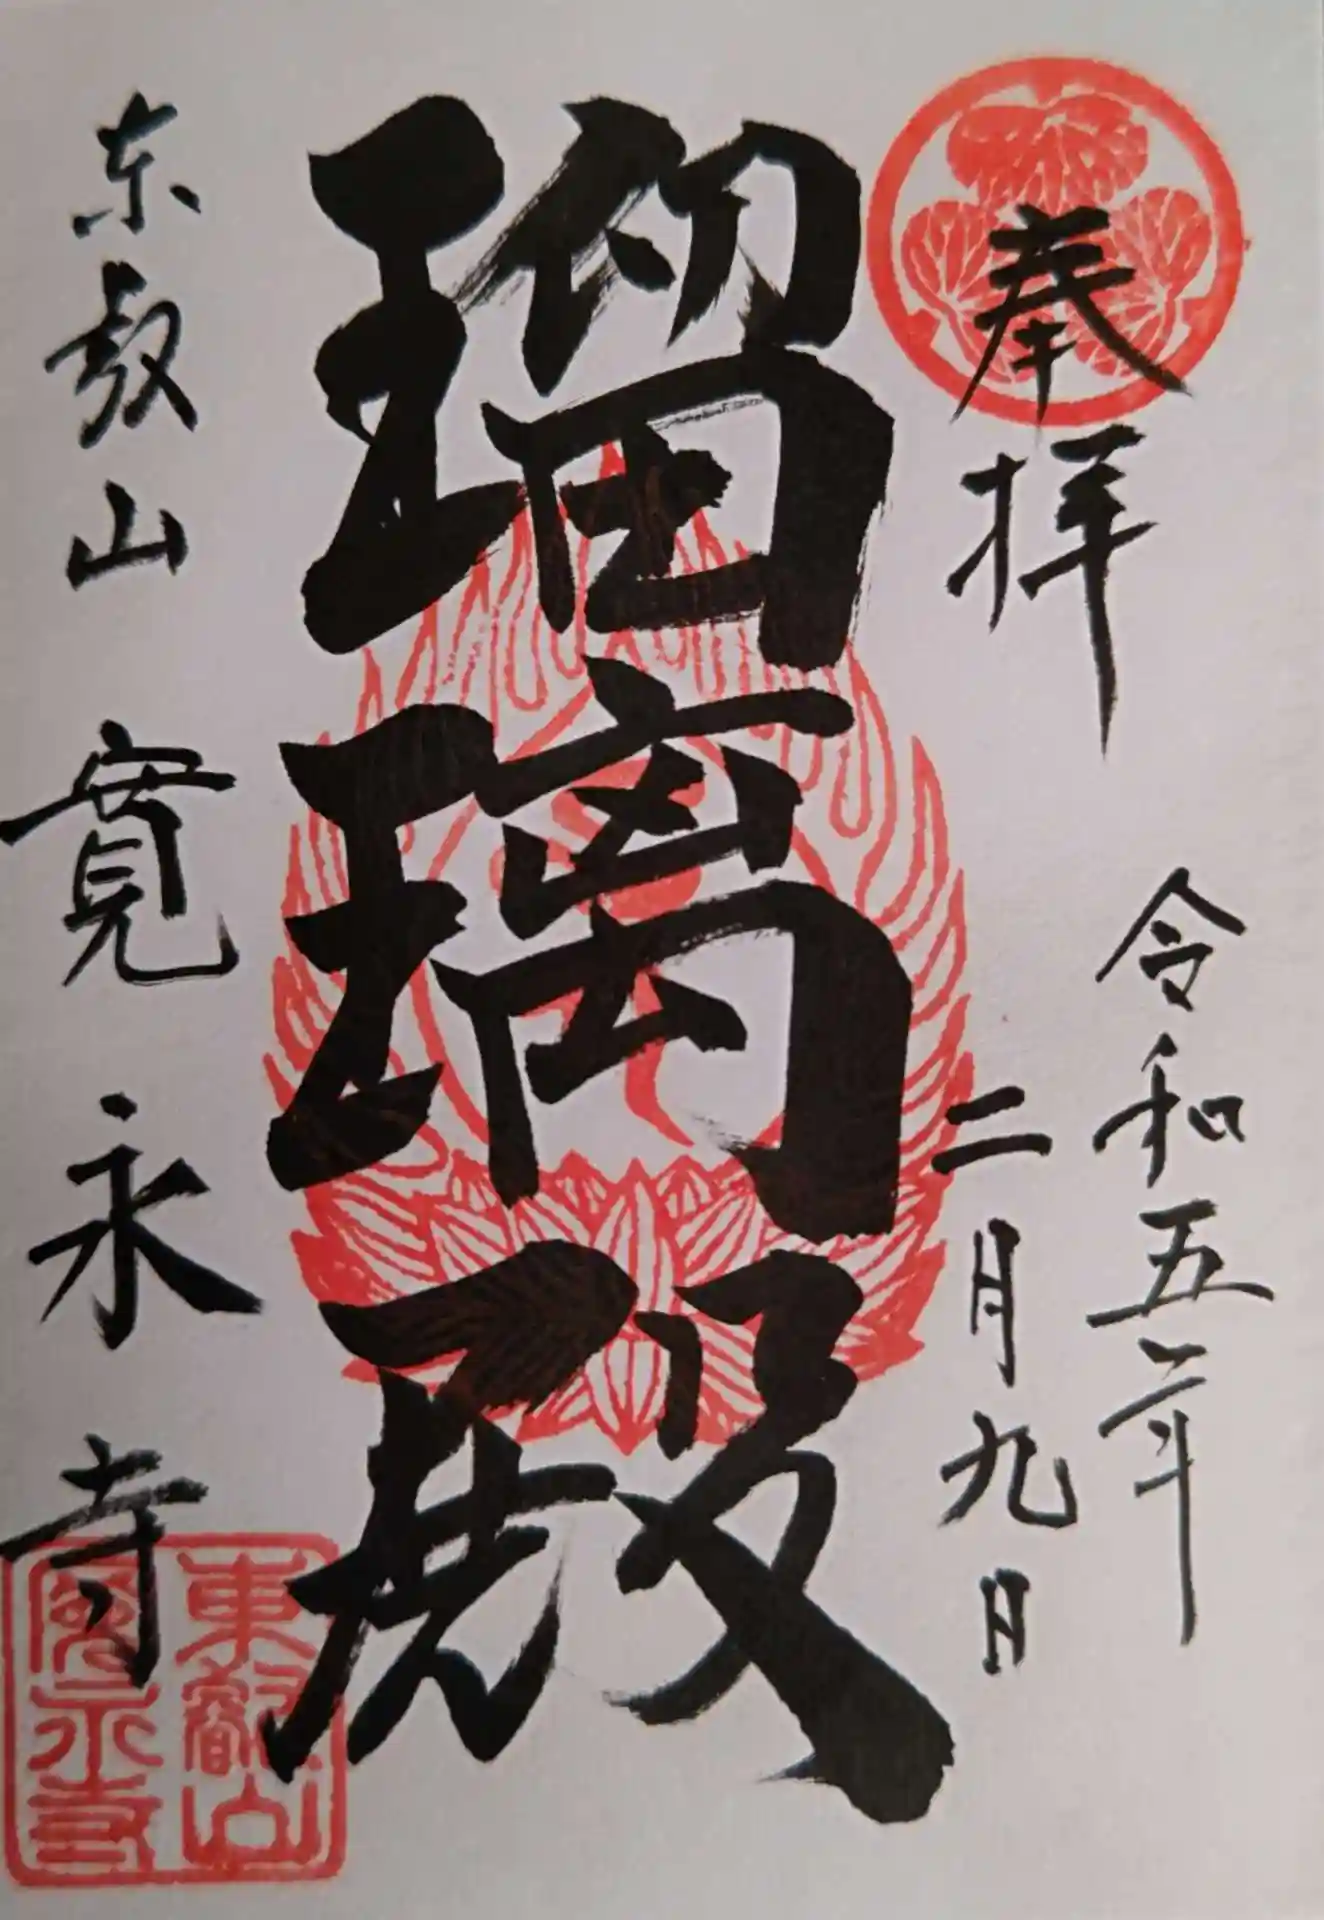 奉拝
令和五年
二月九日
瑠璃殿
东叡山 寛永寺
東叡山
寛永寺